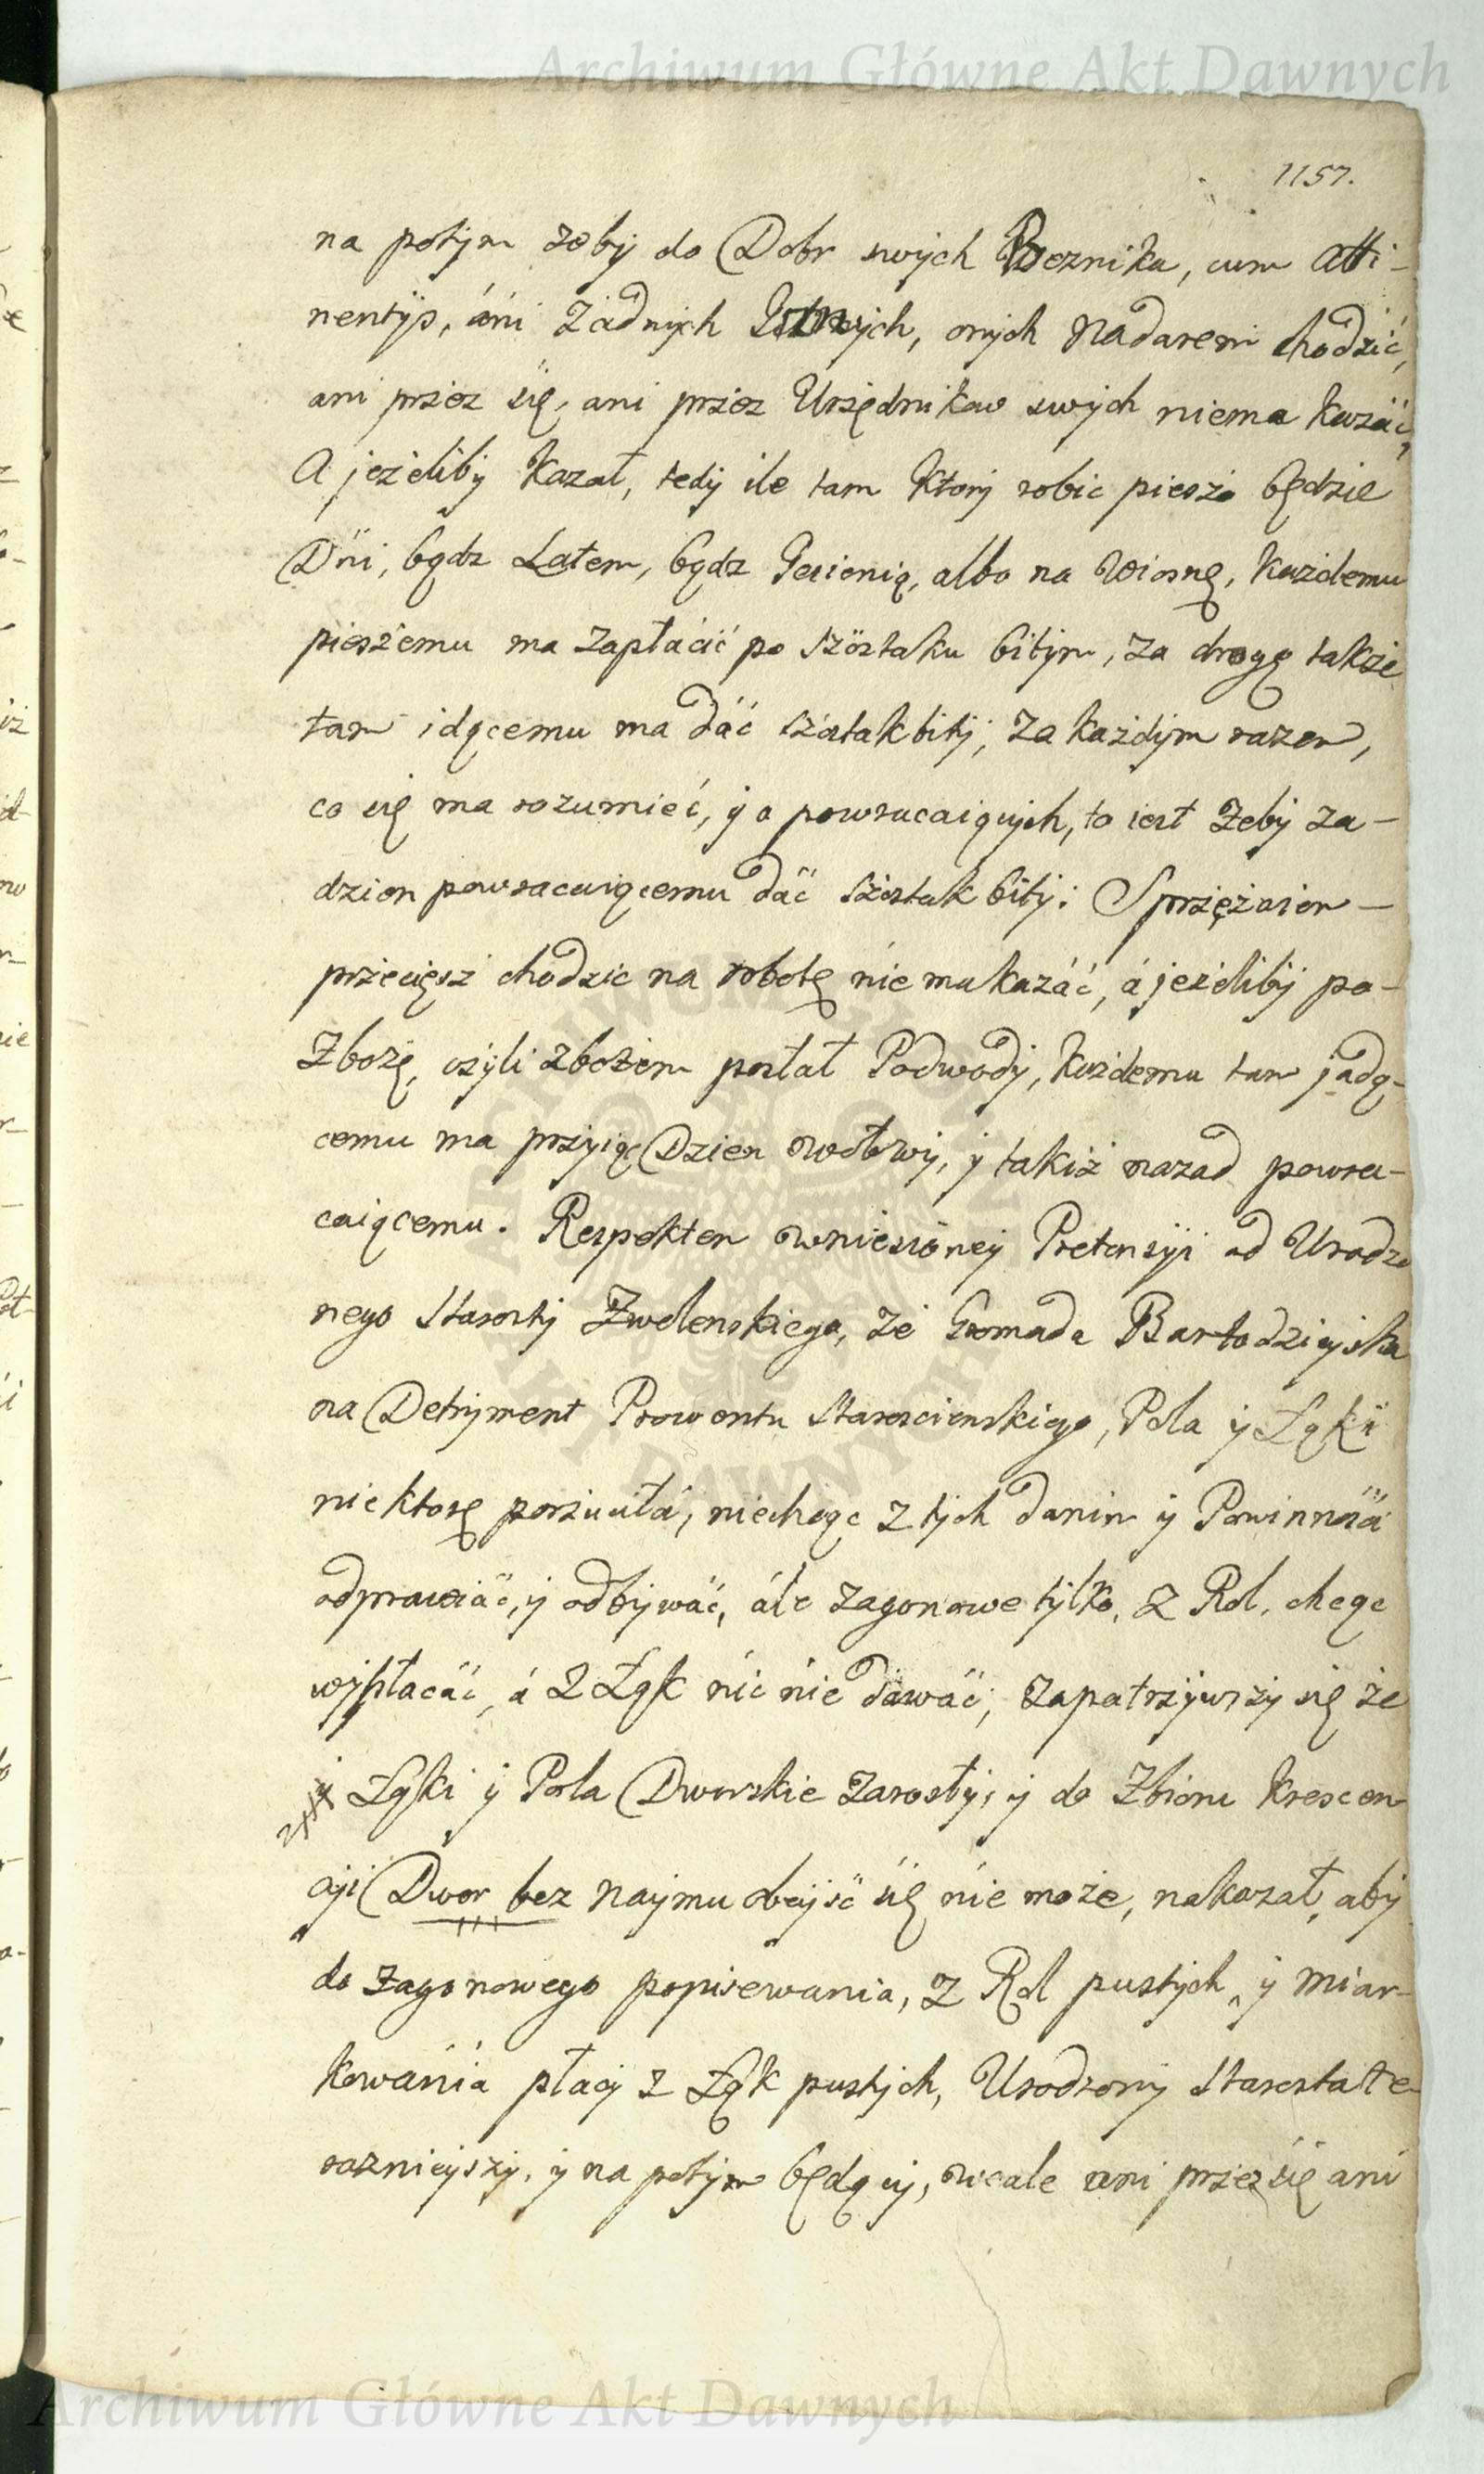 Archiwum Główne Akt Dawnych
1157.
na potym żeby do Dobr swych Brzeznika, cum Atti-
nentijs, áni żadnych Jnnych, onych nadarem chodzić,
ani przez się, ani przez Urzędnikow swych niema kazáć,
A jeżeliby kazał, tedy ile tam ktory robic pieszo będzie
Dni, bądz Latem, bądz Jesienią, albo na Wiosnę, każdemu
pieszemu ma zapłácić po szóstaku bitym, za drogę także
tam idącemu ma dáć szóstak bity, za każdym razem,
co się ma rozumieć, y o powracaiących, to iest żeby za-
dzien powracaiącemu dáć szóstak bity: Sprzężaiem-
przecięsz chodzic na robotę nie ma kazáć, á jeżeliby po-
Zbożę, czyli zbożem posłał Podwody, każdemu tam jadą-
cemu ma przyiąc Dzien wołowy, y takiż nazad powra-
caiącemu. Respektem wniesioney Pretensyi od Urodzo
nego Starosty Zwolenskiego, że Gromada Bartodzieyska
na Detryment Prowentu Staroscienskiego, Pola y Łąki
niektorę porzuciłá, niechcąc z tych danin y Powinności
odprawiáć, y odbywáć, ále zagonowe tylko, z Rol, chcąc
wypłacáć, á z Łąk nic nie dawáć, zapatrzywszy się że
y Łąki y Pola Dworskie zarosły, y do Zbioru krescen
cyi Dwor bez naymu obeyść się nie może, nakazał, aby
do zagonowego popisewania, z Rol pustych, y miar-
kowánia płacy z Łąk pustych, Urodzony Starosta te-
raznieyszy, y na potym będący, wcale ani przez się ani
Archiwum Główne Akt Dawnych